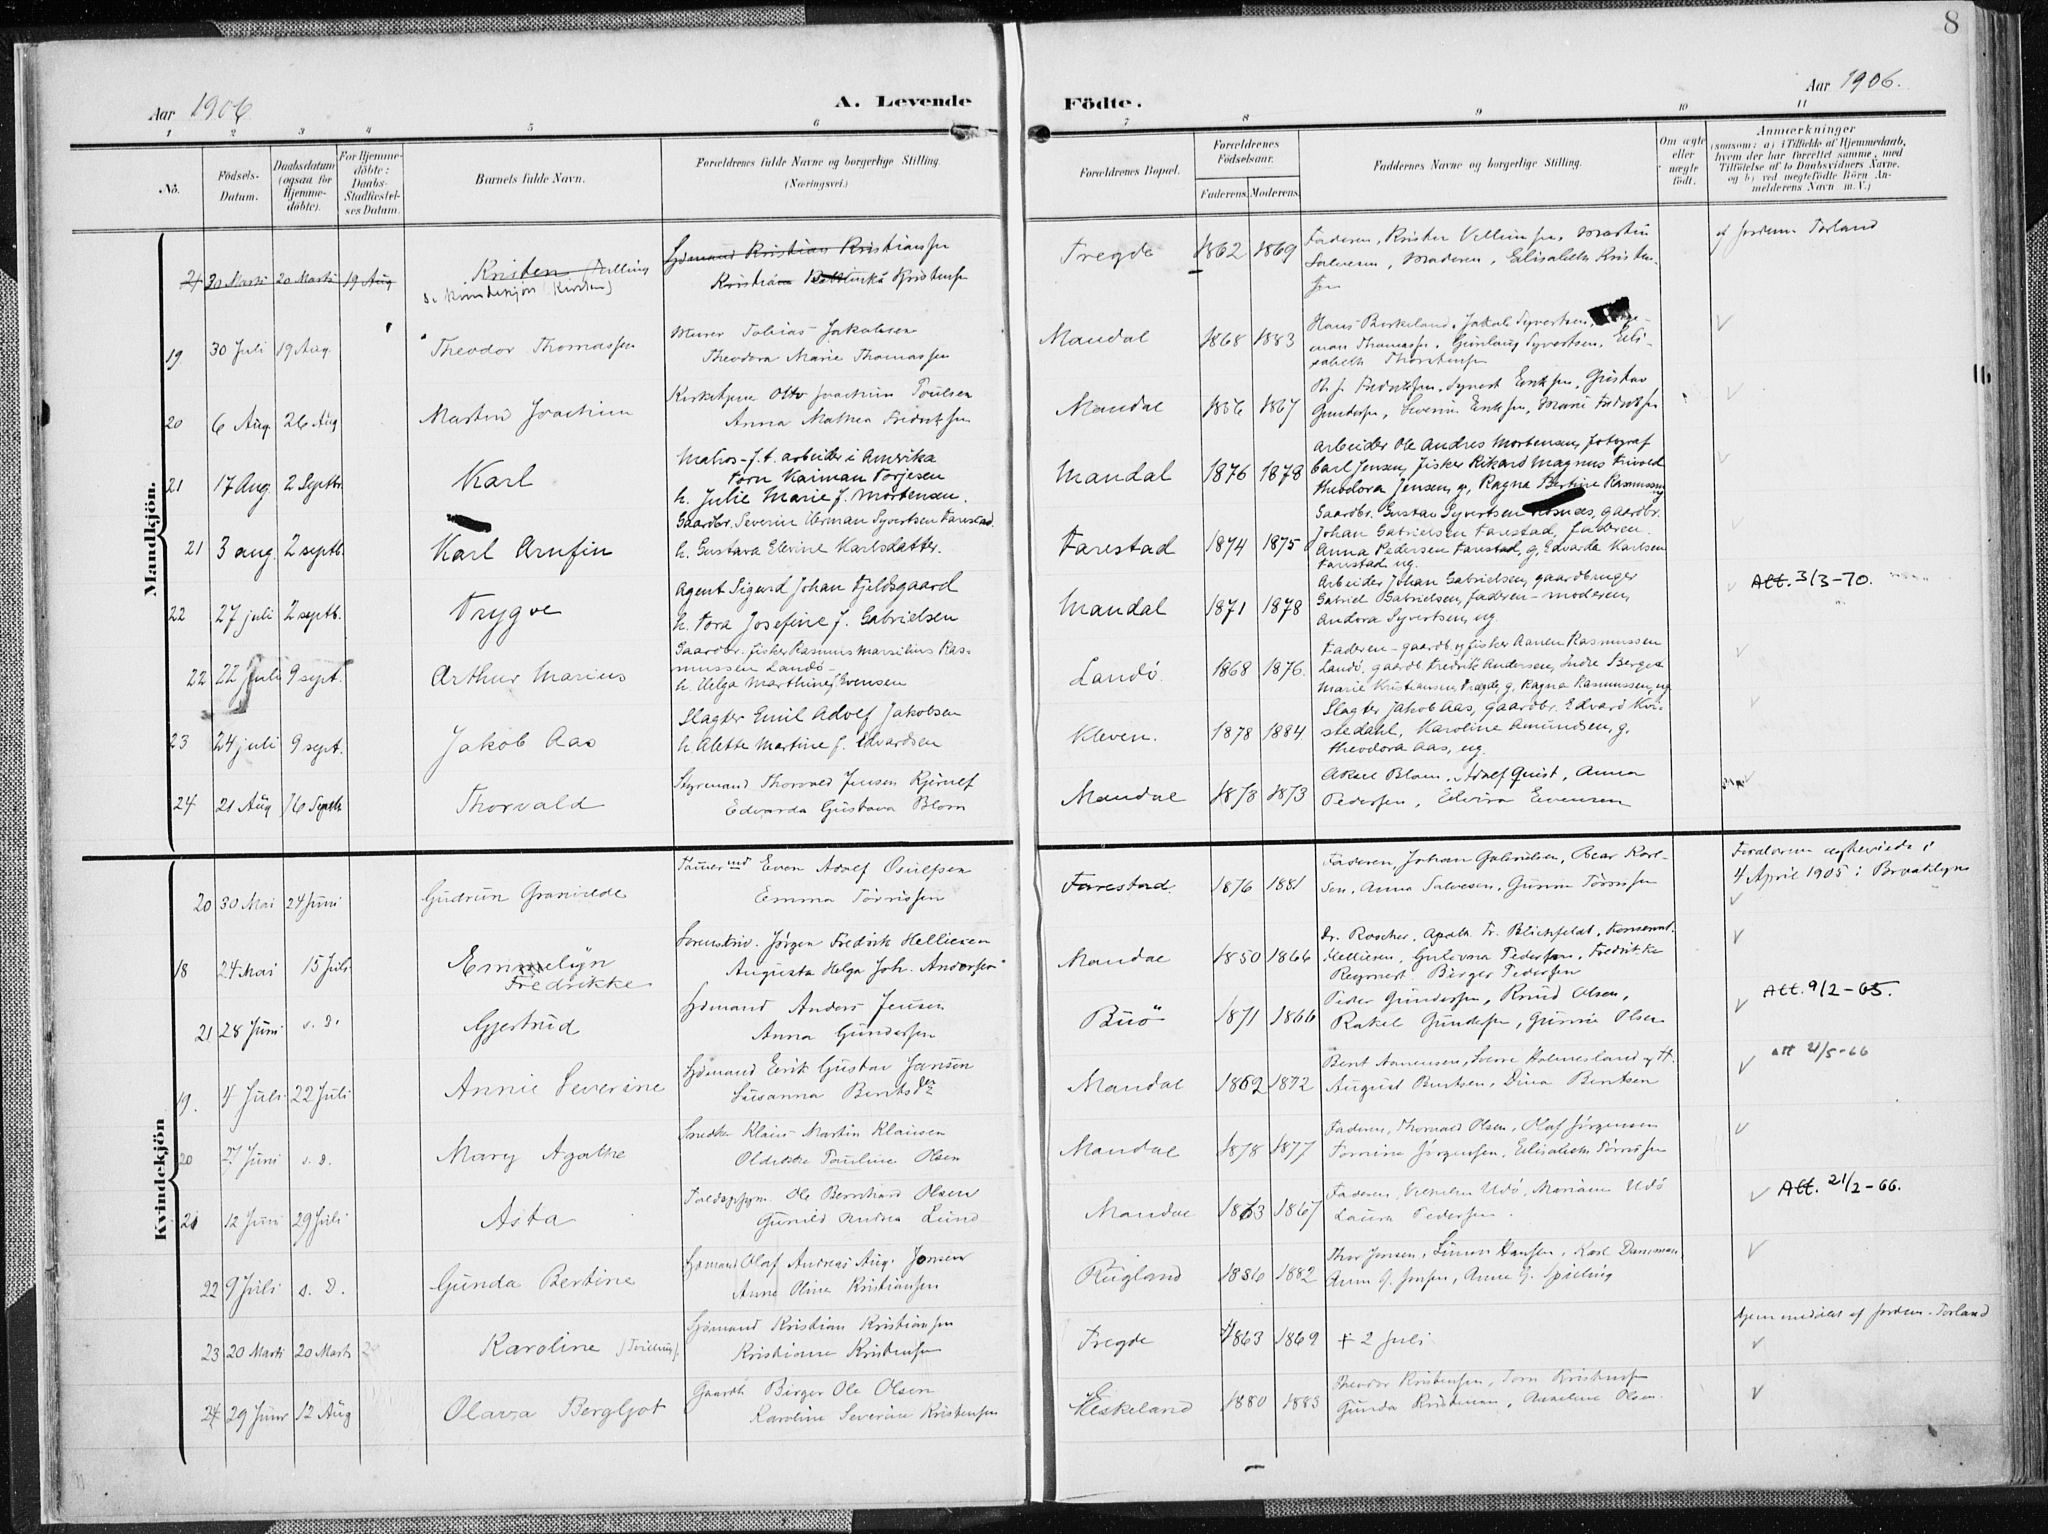 8
Aar 1906
A. Levende
Födte.
Aar 1906.
1 2 3 4 5 6 7 8 9 10 11
No.
Födsels-
Datum.
Daabsdatum
(ogsaa for
Hjemme-
döbte).
For Hjemme-
döbte:
Daabs-
Stadfæstel-
ses Datum.
Barnets fulde Navn.
Forældrenes fulde Navne og borgerlige Stilling.
(Næringsvei.)
Forældrenes Bopæl.
Forældrenes
Födselsaar.
Faderens. Moderens.
Faddernes Navne og borgerlige Stilling.
Om ægte
eller
uægte
födt.
Anmærkninger
(saasom: a) i Tilfælde af Hjemmedaab,
hvem der har forrettet samme, med
Tilföielse af to Daabsvidners Navne.
og b) ved uægtefödte Börn An-
melderens Navn m. V.)
Mandkjön.
21 20 Marti 20 Marti 19 Aug Kristen (Tvilling
Sömand Kristian Kristiansen
Kristiane Kristensen
Fregde 1862 1869
Faderen, Martin
Salvesen, Moderen, Elisabeth Kristen-
sen
af Jordem. Torland
19 30 Juli 19 Aug. Theodor Thomassen
Murer Tobias Jakobsen
Theodora Marie Thomassen
Mandal 1868 1883
Hans Birkeland, Jakob Syvertsen,
Thomassen, Gunlaug Syvertsen, Eli-
sabeth Thorstensen
20 6 Aug. 26 Aug Martin Joachim
Otto Joachim Poulsen
Anna Mathea Fredriksen
Mandal 1856 1867
Fredriksen, Syvert Eriksen, Gustav
Gundersen, Severine Eriksen, Marie Fredriksen
21 17 Aug. 2 Septbr. Karl
Matros - f. t. arbeider i Amerika
Torn Kaiman Torjesen
h. Julie Marie f. Mortensen.
Mandal 1876 1878
Arbeider Ole Andres Mortensen, fotograf
Carl Jensen, fisker Rikard Magnus
Theodora Jensen, g, Ragna Bertine Rasmussen
ug
21 3 aug. 2 septb. Karl Arnfin
Gaardbr. Severin Herman Syvertsen Farestad.
h. Gustava Elevine Karlsdatter.
Farestad 1874 1875
Gaardbr. Gustav Syvertsen gaardbr.
Johan Gabrielsen Farestad, faderen.
Anna Pedersen Farestad, g, Edvarda Karlsen
Farestad ug.
22 27 juli 2 septb. Trygve
Agent Sigurd Johan Fjeldsgaard
h. Tora Josefine f. Gabrielsen
Mandal 1871 1878
Arbeider Johan Gabrielsen, gaardbruger
Gabriel Gabrielsen, faderen - moderen,
Andora Syvertsen, ug.
Att. 3/3-70.
22 22 juli 9 sept. Arthur Marius
Gaardbr. fisker Rasmus Marselius Ras-
mussen Landö -
h. Helga Marthine f Evensen
Landö. 1868 1876.
Faderen - gaardb. og fisker Aanen Rasmussen
Landö, gaardb. Fredrik Andersen, Indre Berge
Marie Kristiansen, Fregde, g, Ragna Rasmussen, ug
23 24 juli 9 sept. Jakob Aas
Slagter Emil Adolf Jakobsen
h. Alette Martine f. Edvardsen
Kleven. 1878 1884
Slagter Jakob Aas, gaardbr. Edvard Kvi-
stedahl, Karoline Amundsen, g,
Theodora Aas, ug.
24 21 Aug 16 Septb Thorvald
Styrmand Thorvald Jensen Kjörulf
Edvarda Gustava Blom
Mandal 1878 1873
Aksel Blom, Adolf Quist, Anna
Pedersen, Elvira Evensen
Kvindekjön
20 30 Mai 24 Juni Gudrun Granvilde
Even Adolf Osulfsen
Emma Törrissen
Farestad. 1876 1881
Faderen, Johan Gabrielsen, Oscar Karl-
sen, Anna Salvesen, Gunda Törrissen
Forældrene ægteviede i
4 April 1905 i Brooklyn
18 24 Mai 15 Juli Emmelyn
Fredrikke
Sorenskriv. Jörgen Fredrik Helliesen
Augusta Helga Joh. Andersen
Mandal 1850 1866
Dr. Roscher, Apoth. Fr. Blichfeldt,
Helliesen, Gulovna Pedersen, Fredrikke
Reymert Birger Pedersen
21 28 Juni s. D. Gjertrud
Sömand Anders Jensen
Anna Gundersen
Buö 1871 1866
Peder Gundersen, Knud Olsen,
Rakel Gundersen, Gunnie Olsen
Att. 9/2-65.
19. 4 Juli 22 Juli Annie Severine
Sömand Eerik Gustav Jansen
Susanna Bentsen
Mandal 1862 1872
Bent Aanensen, Sverre Holmesland og H.
August Bentsen, Dina Bentsen
att 21/5-66
20 7. Juni s. D. Mary Agathe
Snedker Klaus Martin Klausen
Pauline Olsen
Mandal 1878 1877
Faderen, Thorvald Olsen, Olaf Jörgensen
Jörgensen, Elisabeth Törrissen
21 12 Juni 29 Juli Asta
Ole Bernhard Olsen
Gunild Andrea Lund
Mandal 1863 1867
Faderen, Vilhelm Udö, Mariane Udö
Laura Pedersen.
Att. 21/2-66.
22 9 Juli s. D. Gunda Bertine
Sömand Olaf Andreas Aug. Jensen
Anne Oline Kristiansen
Rugland 1856 1882
Thor Jensen, Simon Hansen, Karl Dansman,
Anne G. Jensen, Anne G. Spirling
23 20 Marti 20 Marts Karoline (Tvilling).
Sömand Kristian Kristiansen
Kristiane Kristensen
Fregde 1863 1869
+ 2 Juli
Hjemmedöbt af Jordem. Torland
24 29 Juni 12 Aug Olava Bergljot
Gaardb Birger Ole Olsen
Karoline Severine Kristensen
Eskeland 1880 1883
Theodor Kristensen, Tom Kristensen
Gunda Kristensen, Olsen.